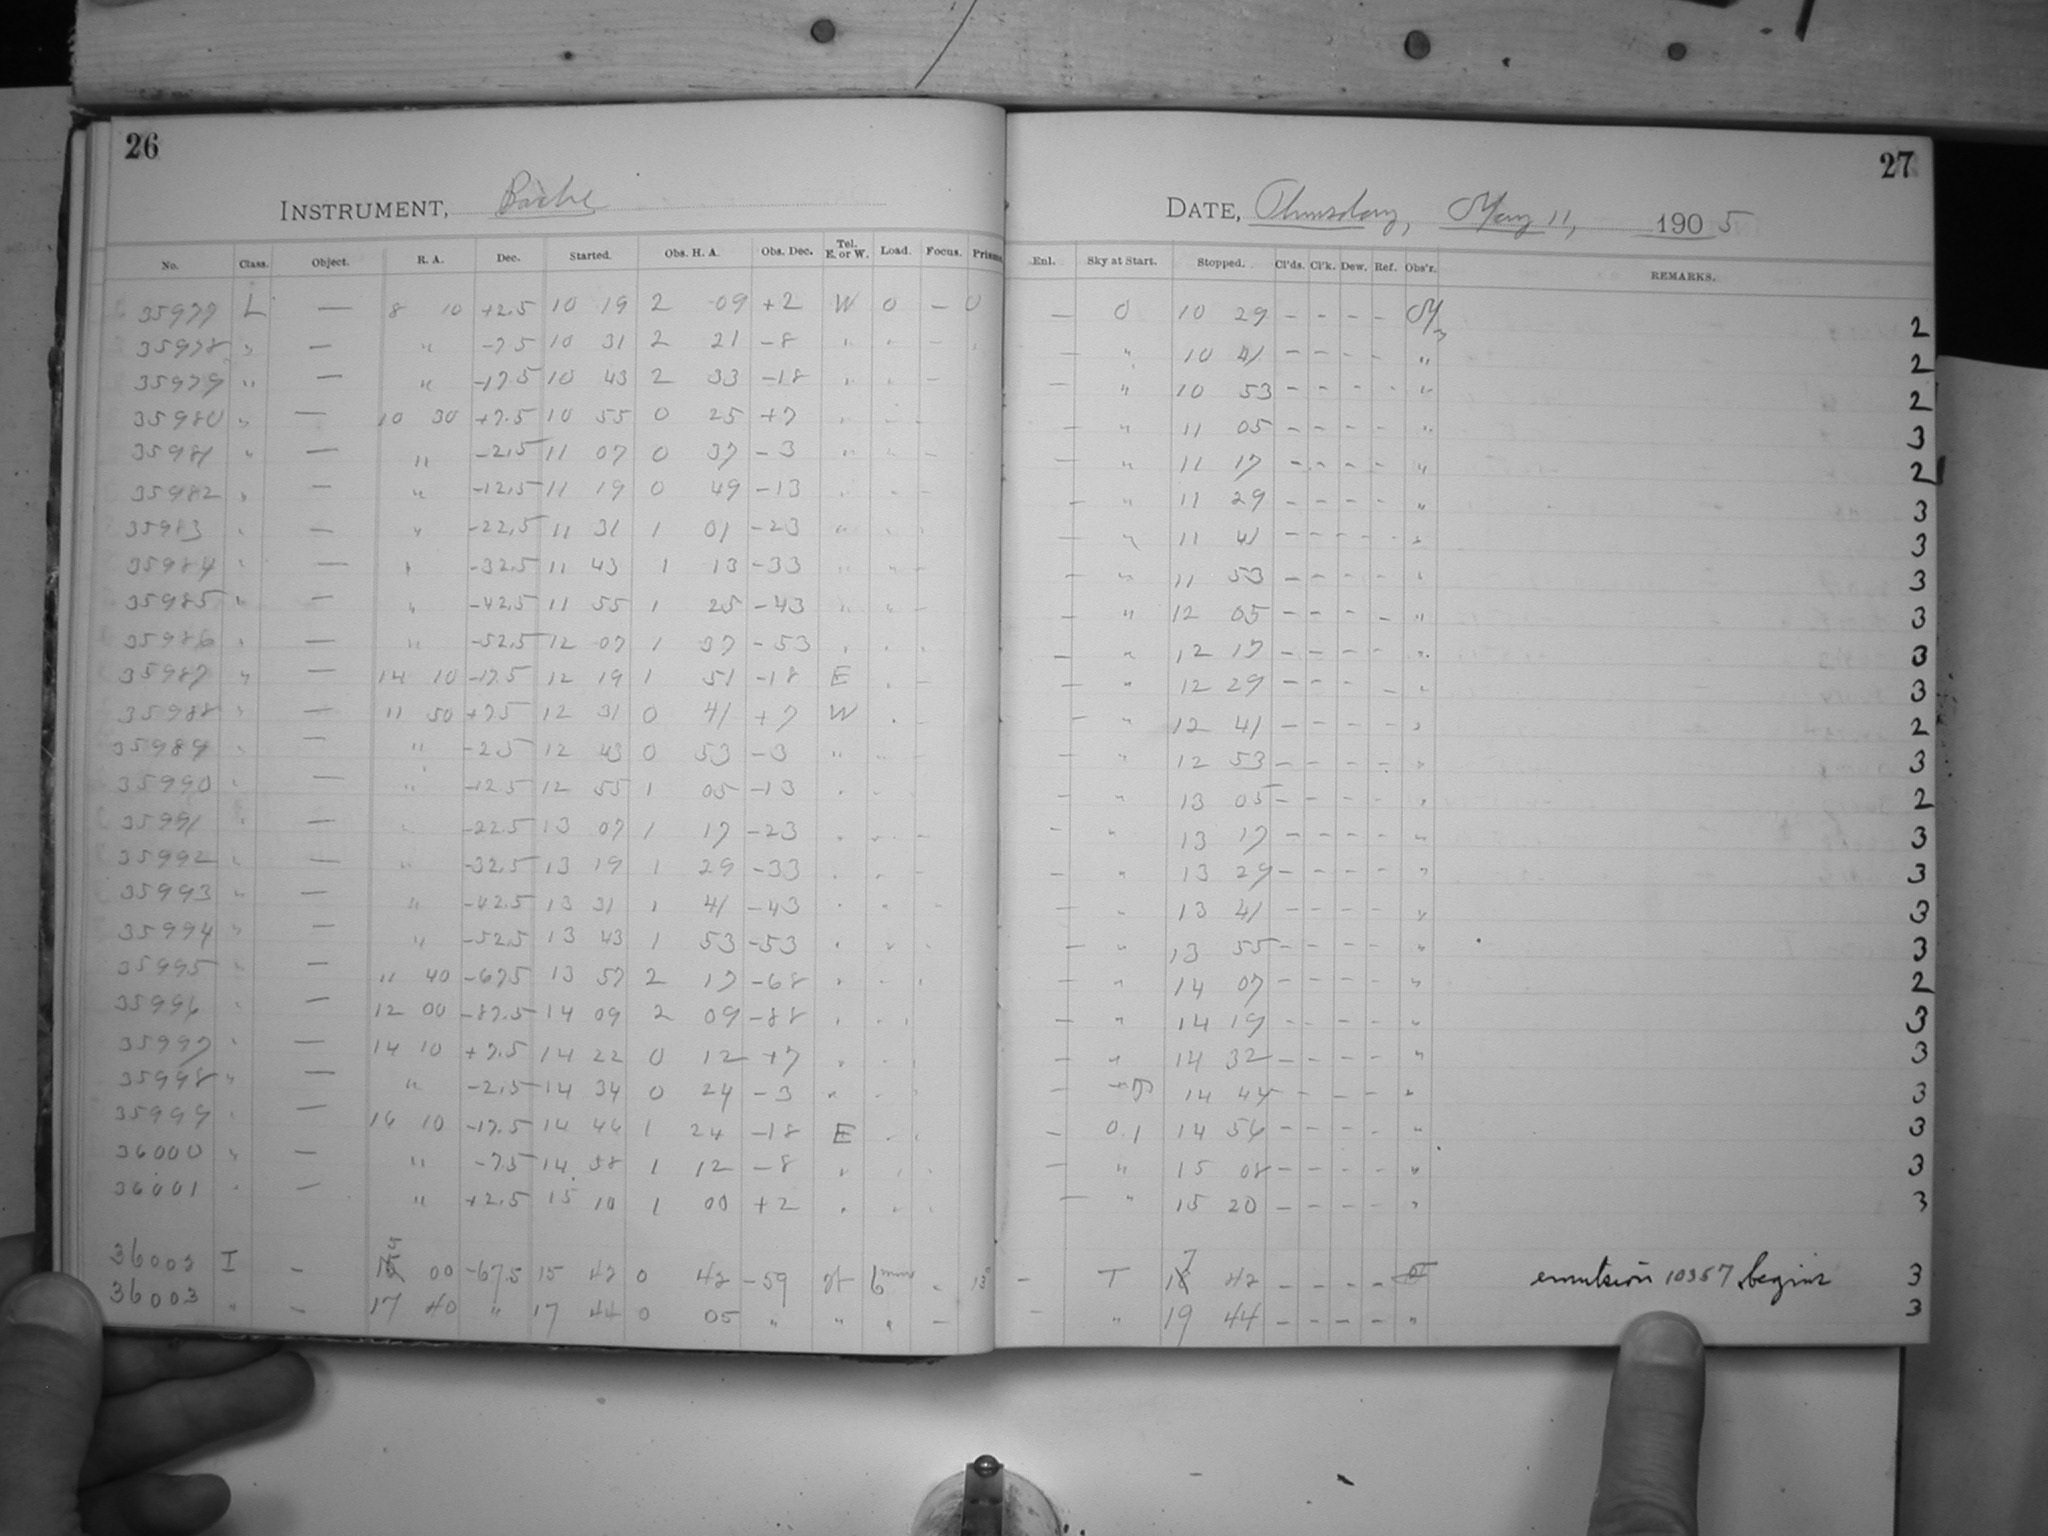 26
INSTRUMENT, Bache
No. Class. Object. R. A. Dec. Started. Obs. H. A. Obs. Dec. Tel. E. or W. Load. Focus. Prisms.
35977 L — 8 10 +2.5 10 19 2 09 +2 W 0 — 0
35978 " — " -7.5 10 31 2 21 -8 " " —
35979 " — " -17.5 10 43 2 33 -18 " " —
35980 " — 10 30 +7.5 10 55 0 25 +7 " " —
35981 " — " -2.5 11 07 0 37 -3 " " —
35982 " — " -12.5 11 19 0 49 -13 " " —
35983 " — " -22.5 11 31 1 01 -23 " "
35984 " — " -32.5 11 43 1 13 -33 " " —
35985 " — " -42.5 11 55 1 25 -43 " " —
35986 " — " -52.5 12 07 1 37 -53 " "
35987 " — 14 10 -17.5 12 19 1 51 -18 E " —
35988 " — 11 50 +7.5 12 31 0 41 +7 W " —
35989 " — " -2.5 12 43 0 53 -3 " "
35990 " — " -12.5 12 55 1 05 -13 " "
35991 " — " -22.5 13 07 1 17 -23 " " —
35992 " — " -32.5 13 19 1 29 -33 " " —
35993 " — " -42.5 13 31 1 41 -43 " " —
35994 " — " -52.5 13 43 1 53 -53 " "
35995 " — 11 40 -67.5 13 57 2 17 -68 " "
35996 " — 12 00 -87.5 14 09 2 09 -88 " "
35997 " — 14 10 +7.5 14 22 0 12 +7 " "
35998 " — " -2.5 14 34 0 24 -3 " "
35999 " — 16 10 -17.5 14 46 1 24 -18 E "
36000 " — " -7.5 14 58 1 12 -8 " "
36001 " — " +2.5 15 10 1 00 +2 " "
36002 I - 00 -67.5 15 42 0 42 -59 6mm - 13°
36003 " - 17 40 " 17 44 0 05 " " " —
27
DATE, Thursday, May 11, 1905
Enl. Sky at Start. Stopped. Cl'ds. Cl'k. Dew. Ref. Obs'r. REMARKS.
— 0 10 29 - - - - M 2
— " 10 41 - - - - " 2
— " 10 53 - - - - " 2
— " 11 05 - - - - " 3
— " 11 17 - - - - " 2
— " 11 29 - - - - " 3
— " 11 41 - - - - " 3
— " 11 53 - - - - " 3
— " 12 05 - - - - " 3
— " 12 17 - - - - " 3
— " 12 29 - - - - " 3
— " 12 41 - - - - " 2
— " 12 53 - - - - " 3
— " 13 05 - - - - " 2
— " 13 17 - - - - " 3
— " 13 29 - - - - " 3
— " 13 41 - - - - " 3
— " 13 55 - - - - " 3
— " 14 07 - - - - " 2
— " 14 19 - - - - " 3
— " 14 32 - - - - " 3
— 14 44 - - - - " 3
— 0.1 14 56 - - - - " 3
— " 15 08 - - - - " 3
— " 15 20 - - - - " 3
— T 17 42 - - - - emulsion 10357 begins 3
— " 19 44 - - - - " 3